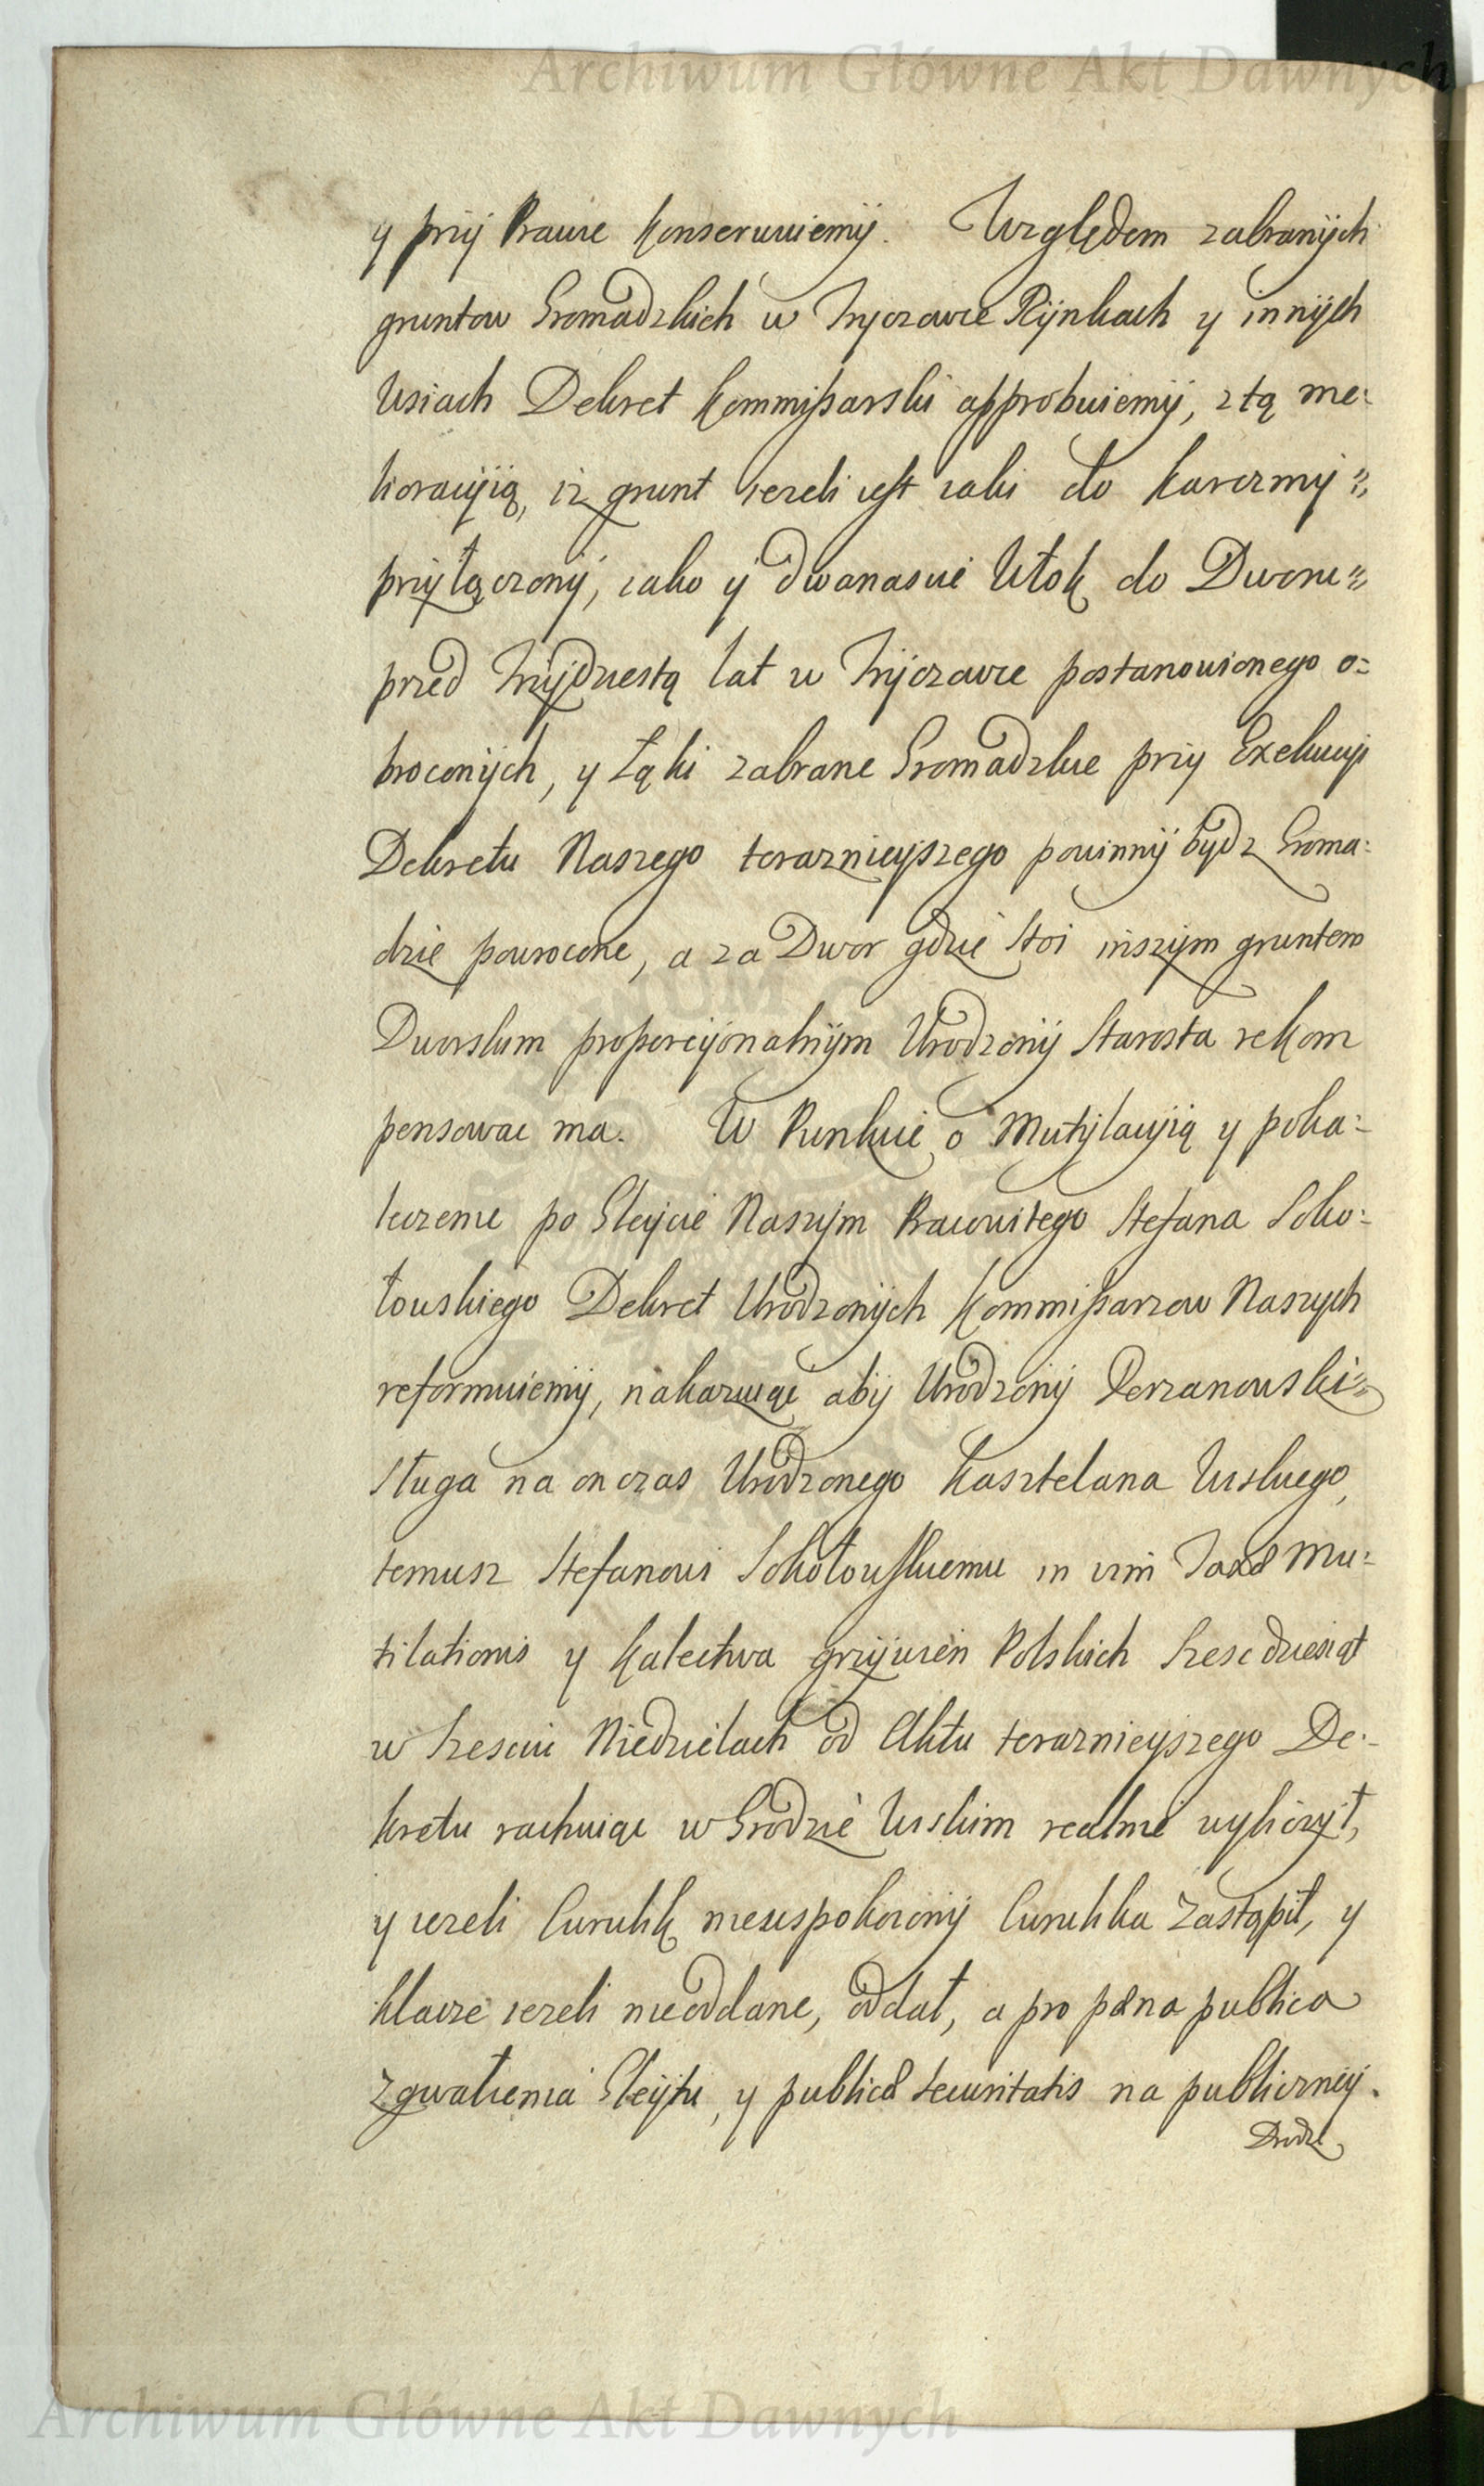 Archiwum Główne Akt Dawnych
y przy Prawie konserwuiemy. Względem zabranych
gruntow Gromadzkich w Trzczowie Rynkach y innych
Wsiach Dekret Kommissarski approbuiemy, z tą me:
lioracyią, iż grunt ieżeli iest iaki do karczmy
przyłączony, iako y dwanascie Włok do Dworu
przed trzydziestą lat w postanowionego o=
broconych, y Łąki zabrane Gromadzkie przy Exekucyi
Dekretu Naszego teraznieyszego powinny bydz Groma:
dzie powrocone, a za Dwor gdzie stoi inszym gruntem
Dworskim proporcyonalnym Urodzony Starosta rekom
pensowac ma. W Punkcie o Mutylacyią y poka=
leczenie po Gleycie Naszym Pracowitego Stefana Soko=
łowskiego Dekret Urodzonych Kommissarzow Naszych
reformuiemy, nakazuiąc aby Urodzony Derzanowski
sługa na on czas Urodzonego Kasztelana Wiskiego,
temusz Stefanowi Sokołowskiemu in vim Taxæ Mu=
tilationis y kalectwa grzywien Polskich szescdziesiąt
w szesciu Niedzielach od Aktu teraznieyszego De=
kretu rachuiąc w Grodzie Wiskim realnie wyliczył,
y ieżeli Cyrulik nieuspokoiony Cyrulika zastąpił, y
klacze ieżeli nieoddane, oddał, a pro pæna publica
zgwałcenia Gleytu, y publicæ securitatis na publiczney.
Drodze
Archiwum Główne Akt Dawnych